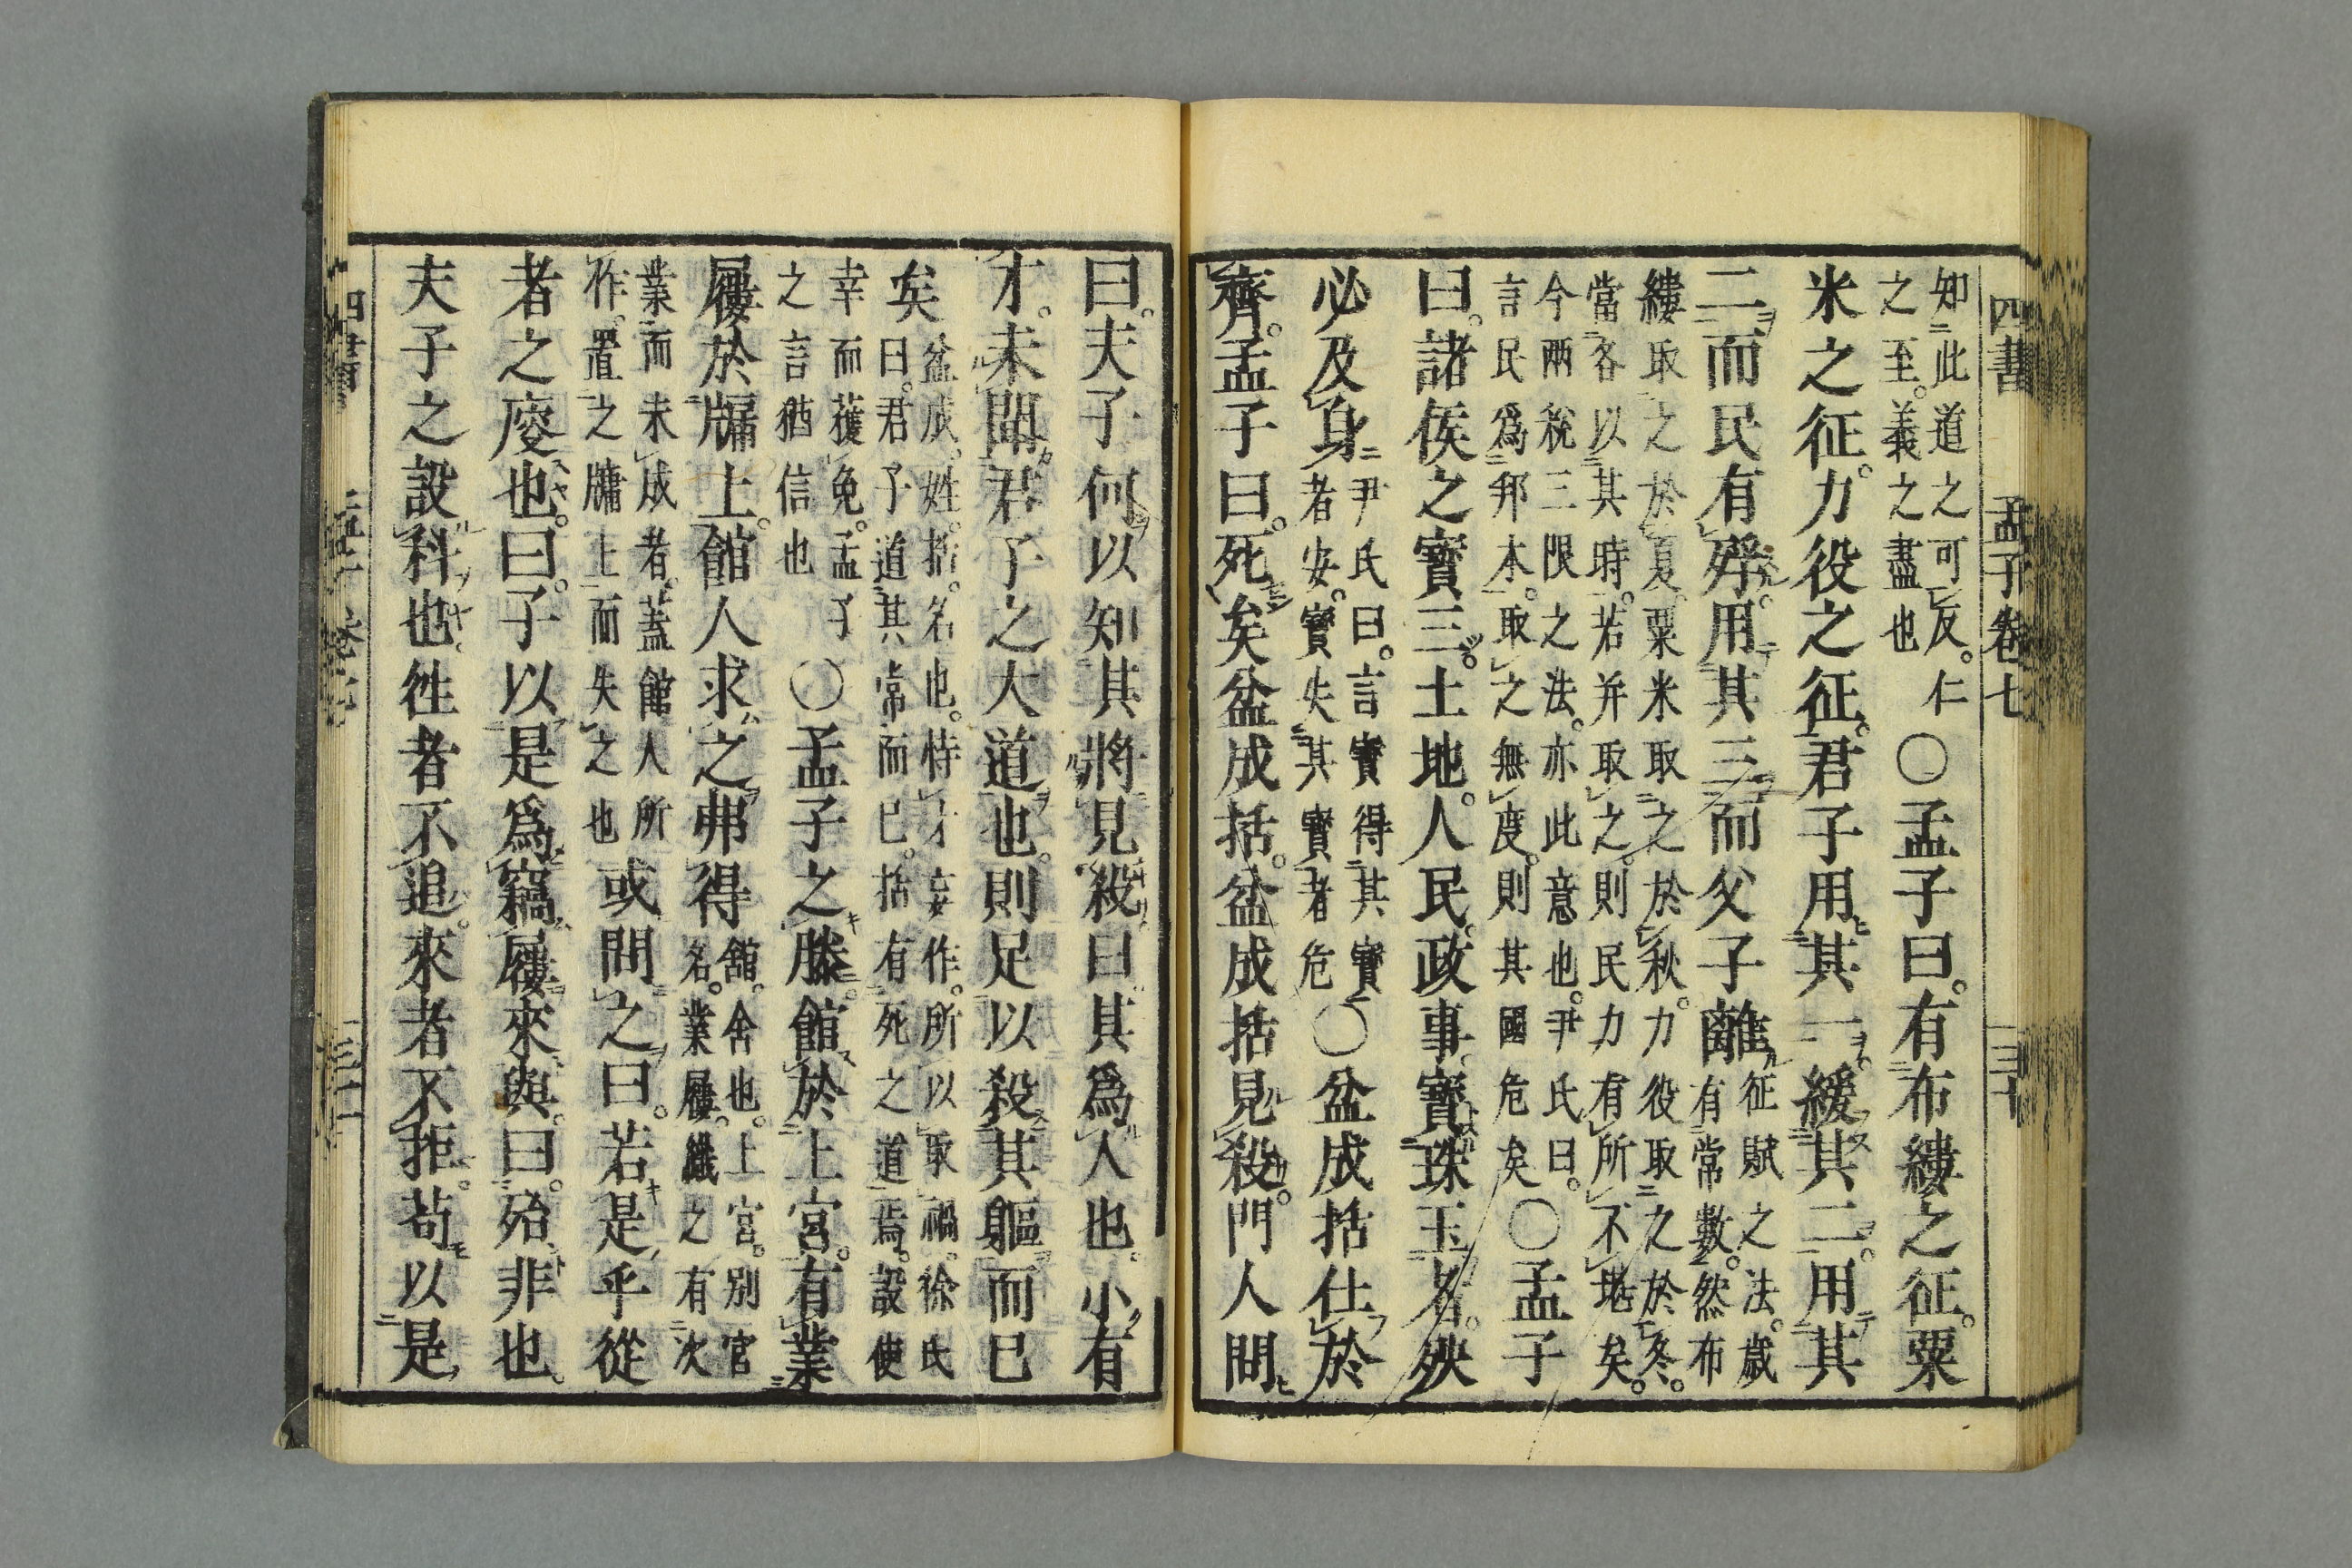 四書 孟子卷七 三十
知此道之可反。仁
之至。義之盡也
○孟子曰。有布縷之征。粟
米之征。力役之征。君子用其一。緩其二。用其
二而民有殍。用其三而父子離
征賦之法。歲
有常數。然布
縷取之於夏。粟米取之於秋。力役取之於冬。
當各以其時。若并取之。則民力有所不堪矣。
今兩稅三限之法。亦此意也。尹氏曰。
言民爲邦本。取之無度。則其國危矣
○孟子
曰。諸侯之寶三。土地。人民。政事。寶珠玉者。殃
必及身
尹氏曰。言寶得其寶
者安。寶失其寶者危
○盆成括仕於
齊。孟子曰。死矣盆成括。盆成括見殺。門人問
曰。夫子何以知其將見殺。曰。其爲人也。小有
才。未聞君子之大道也。則足以殺其軀而已
矣
盆成。姓。括。名也。恃才妄作。所以取禍。徐氏
曰。君子道其常而已。括有死之道焉。設使
幸而獲免。孟子
之言猶信也
○孟子之滕。館於上宮。有業
屨於牖上。館人求之弗得
館。舍也。上宮。別宮
名。業屨。織之有次
業而未成者。蓋館人所
作。置之牖上而失之也
或問之曰。若是乎從
者之廋也。曰。子以是爲竊屨來與。曰。殆非也。
夫子之設科也。徃者不追。來者不拒。苟以是